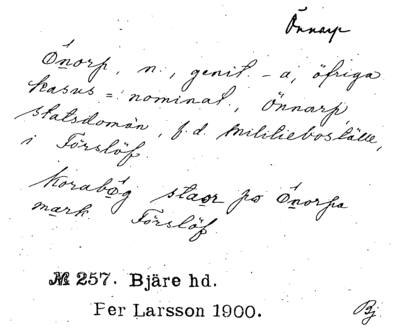 Önnarp
Önorp, n., genit. -a, öfriga
kasus = nominat., Önnarp
statsdomän, f.d. militieboställe,
i Förslöf.
korabög staor po Önorpa
mark. Förslöf
№ 257. Bjäre hd.
Per Larsson 1900.
Bj